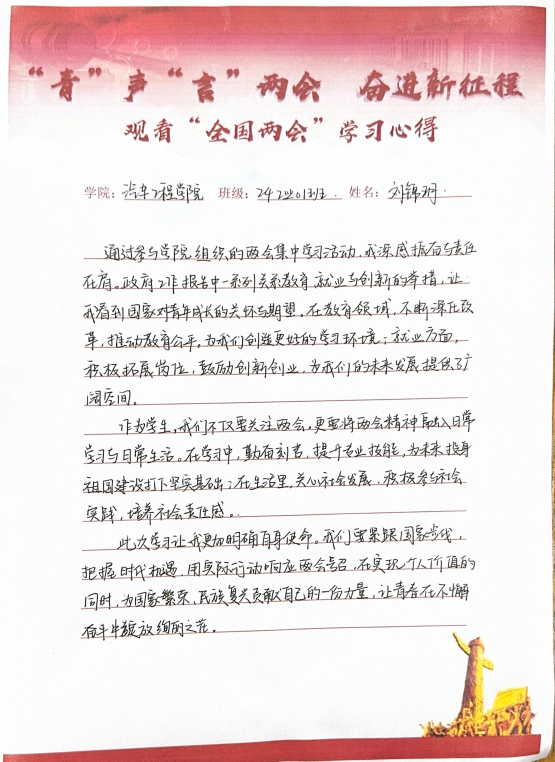 “青”声“言”两会 奋进新征程
观看“全国两会”学习心得
学院：汽车工程学院 班级：24工业01班 姓名：刘锦珂
通过参与学院组织的两会集中学习活动，我深感振奋与责任
在肩。政府工作报告中一系列关系教育、就业与创新的举措，让
我看到国家对青年成长的关怀与期望。在教育领域，不断深化改
革，推动教育公平，为我们创造更好的学习环境；就业方面，
积极拓展岗位，鼓励创新创业，为我们的未来发展提供了广
阔空间。
作为学生，我们不仅要关注两会，更要将两会精神融入日常
学习与日常生活。在学习中，勤奋刻苦，提升专业技能，为未来投身
祖国建设打下坚实基础；在生活里，关心社会发展，积极参与社会
实践，培养社会责任感。
此次学习让我更加明确自身使命。我们要紧跟国家步伐，
把握时代机遇，用实际行动响应两会号召，在实现个人价值的
同时，为国家繁荣、民族复兴贡献自己的一份力量，让青春在不懈
奋斗中绽放绚丽之花。